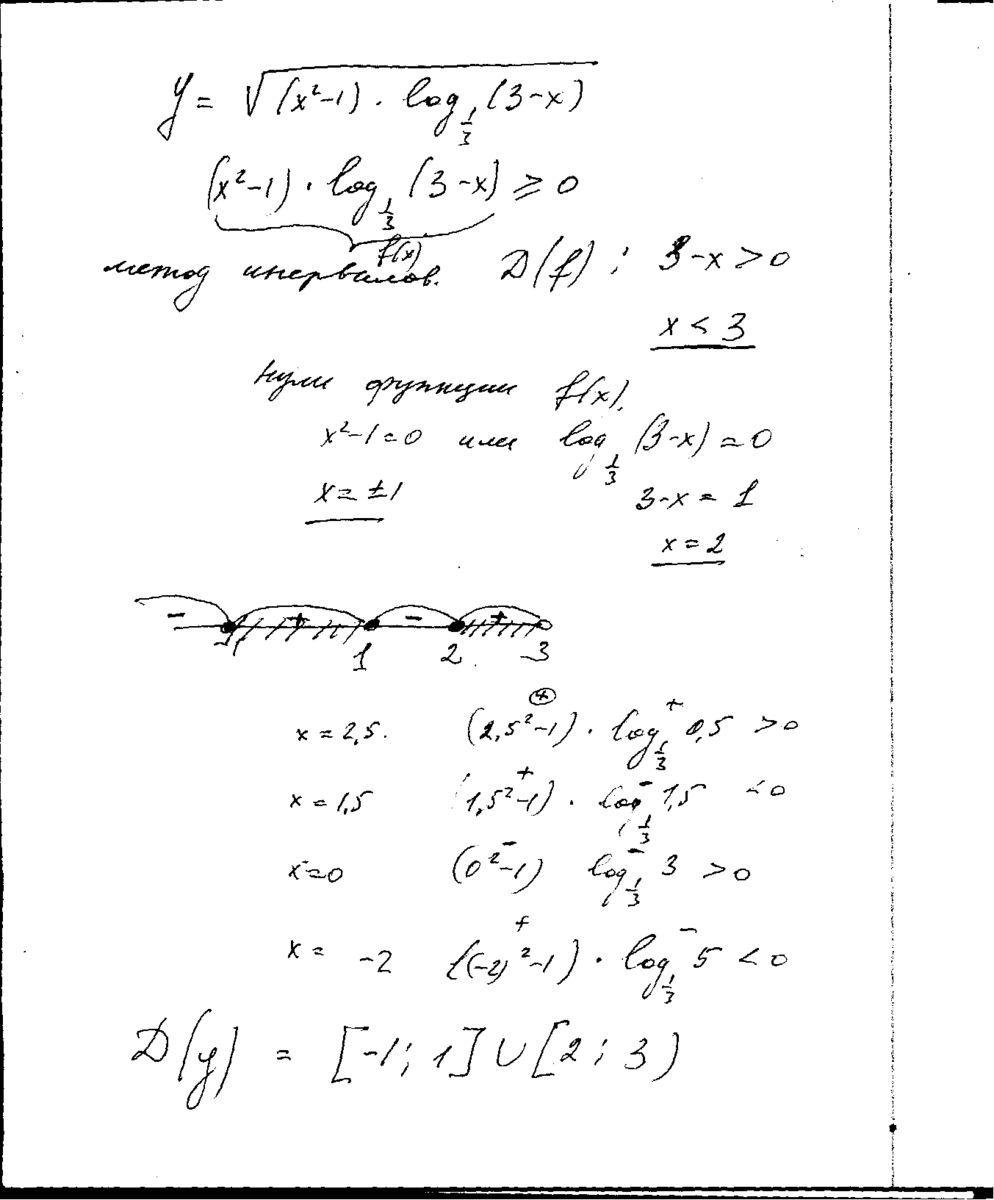 y = √((x²-1) · log_{1/3} (3-x))
(x²-1) · log_{1/3} (3-x) ≥ 0
f(x)
метод интервалов. D(f) : 3-x>0
x < 3
Нули функции f(x).
x²-1=0 или log_{1/3} (3-x) = 0
x = ±1 3-x = 1
x = 2
- + - +
-1 1 2 3
x = 2,5. (2,5²-1) · log_{1/3} 0,5 > 0
+ +
x = 1,5 (1,5²-1) · log_{1/3} 1,5 < 0
+ -
x=0 (0²-1) log_{1/3} 3 > 0
- -
x = -2 ((-2)²-1) · log_{1/3} 5 < 0
+ -
D(y) = [-1; 1] ∪ [2; 3)